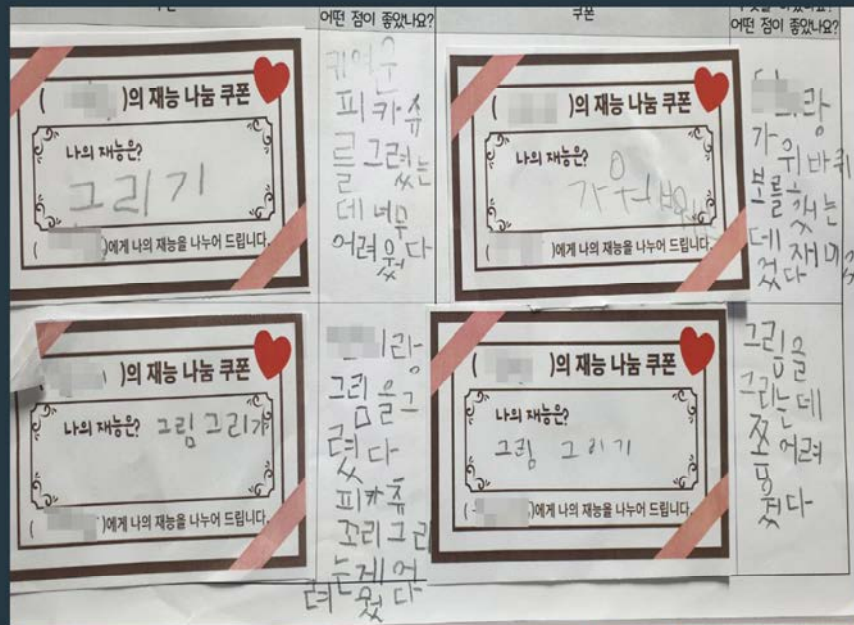 쿠폰
어떤 점이 좋았나요?
쿠폰
어떤 점이 좋았나요?
( )의 재능 나눔 쿠폰
나의 재능은?
그리기
( )에게 나의 재능을 나누어 드립니다.
귀여운
피카츄
를 그렸는
데 너무
어려웠다
( )의 재능 나눔 쿠폰
나의 재능은?
가위바위
( )에게 나의 재능을 나누어 드립니다.
랑
가위바퀴
보를 했는
데 재미
있다
( )의 재능 나눔 쿠폰
나의 재능은? 그림그리기
( )에게 나의 재능을 나누어 드립니다.
이랑
그림을 그
렸다
피카츄
꼬리 그리
는게 어
려웠다
( )의 재능 나눔 쿠폰
나의 재능은?
그림 그리기
( )에게 나의 재능을 나누어 드립니다.
그림을
그리는데
쪼 어려
웠다